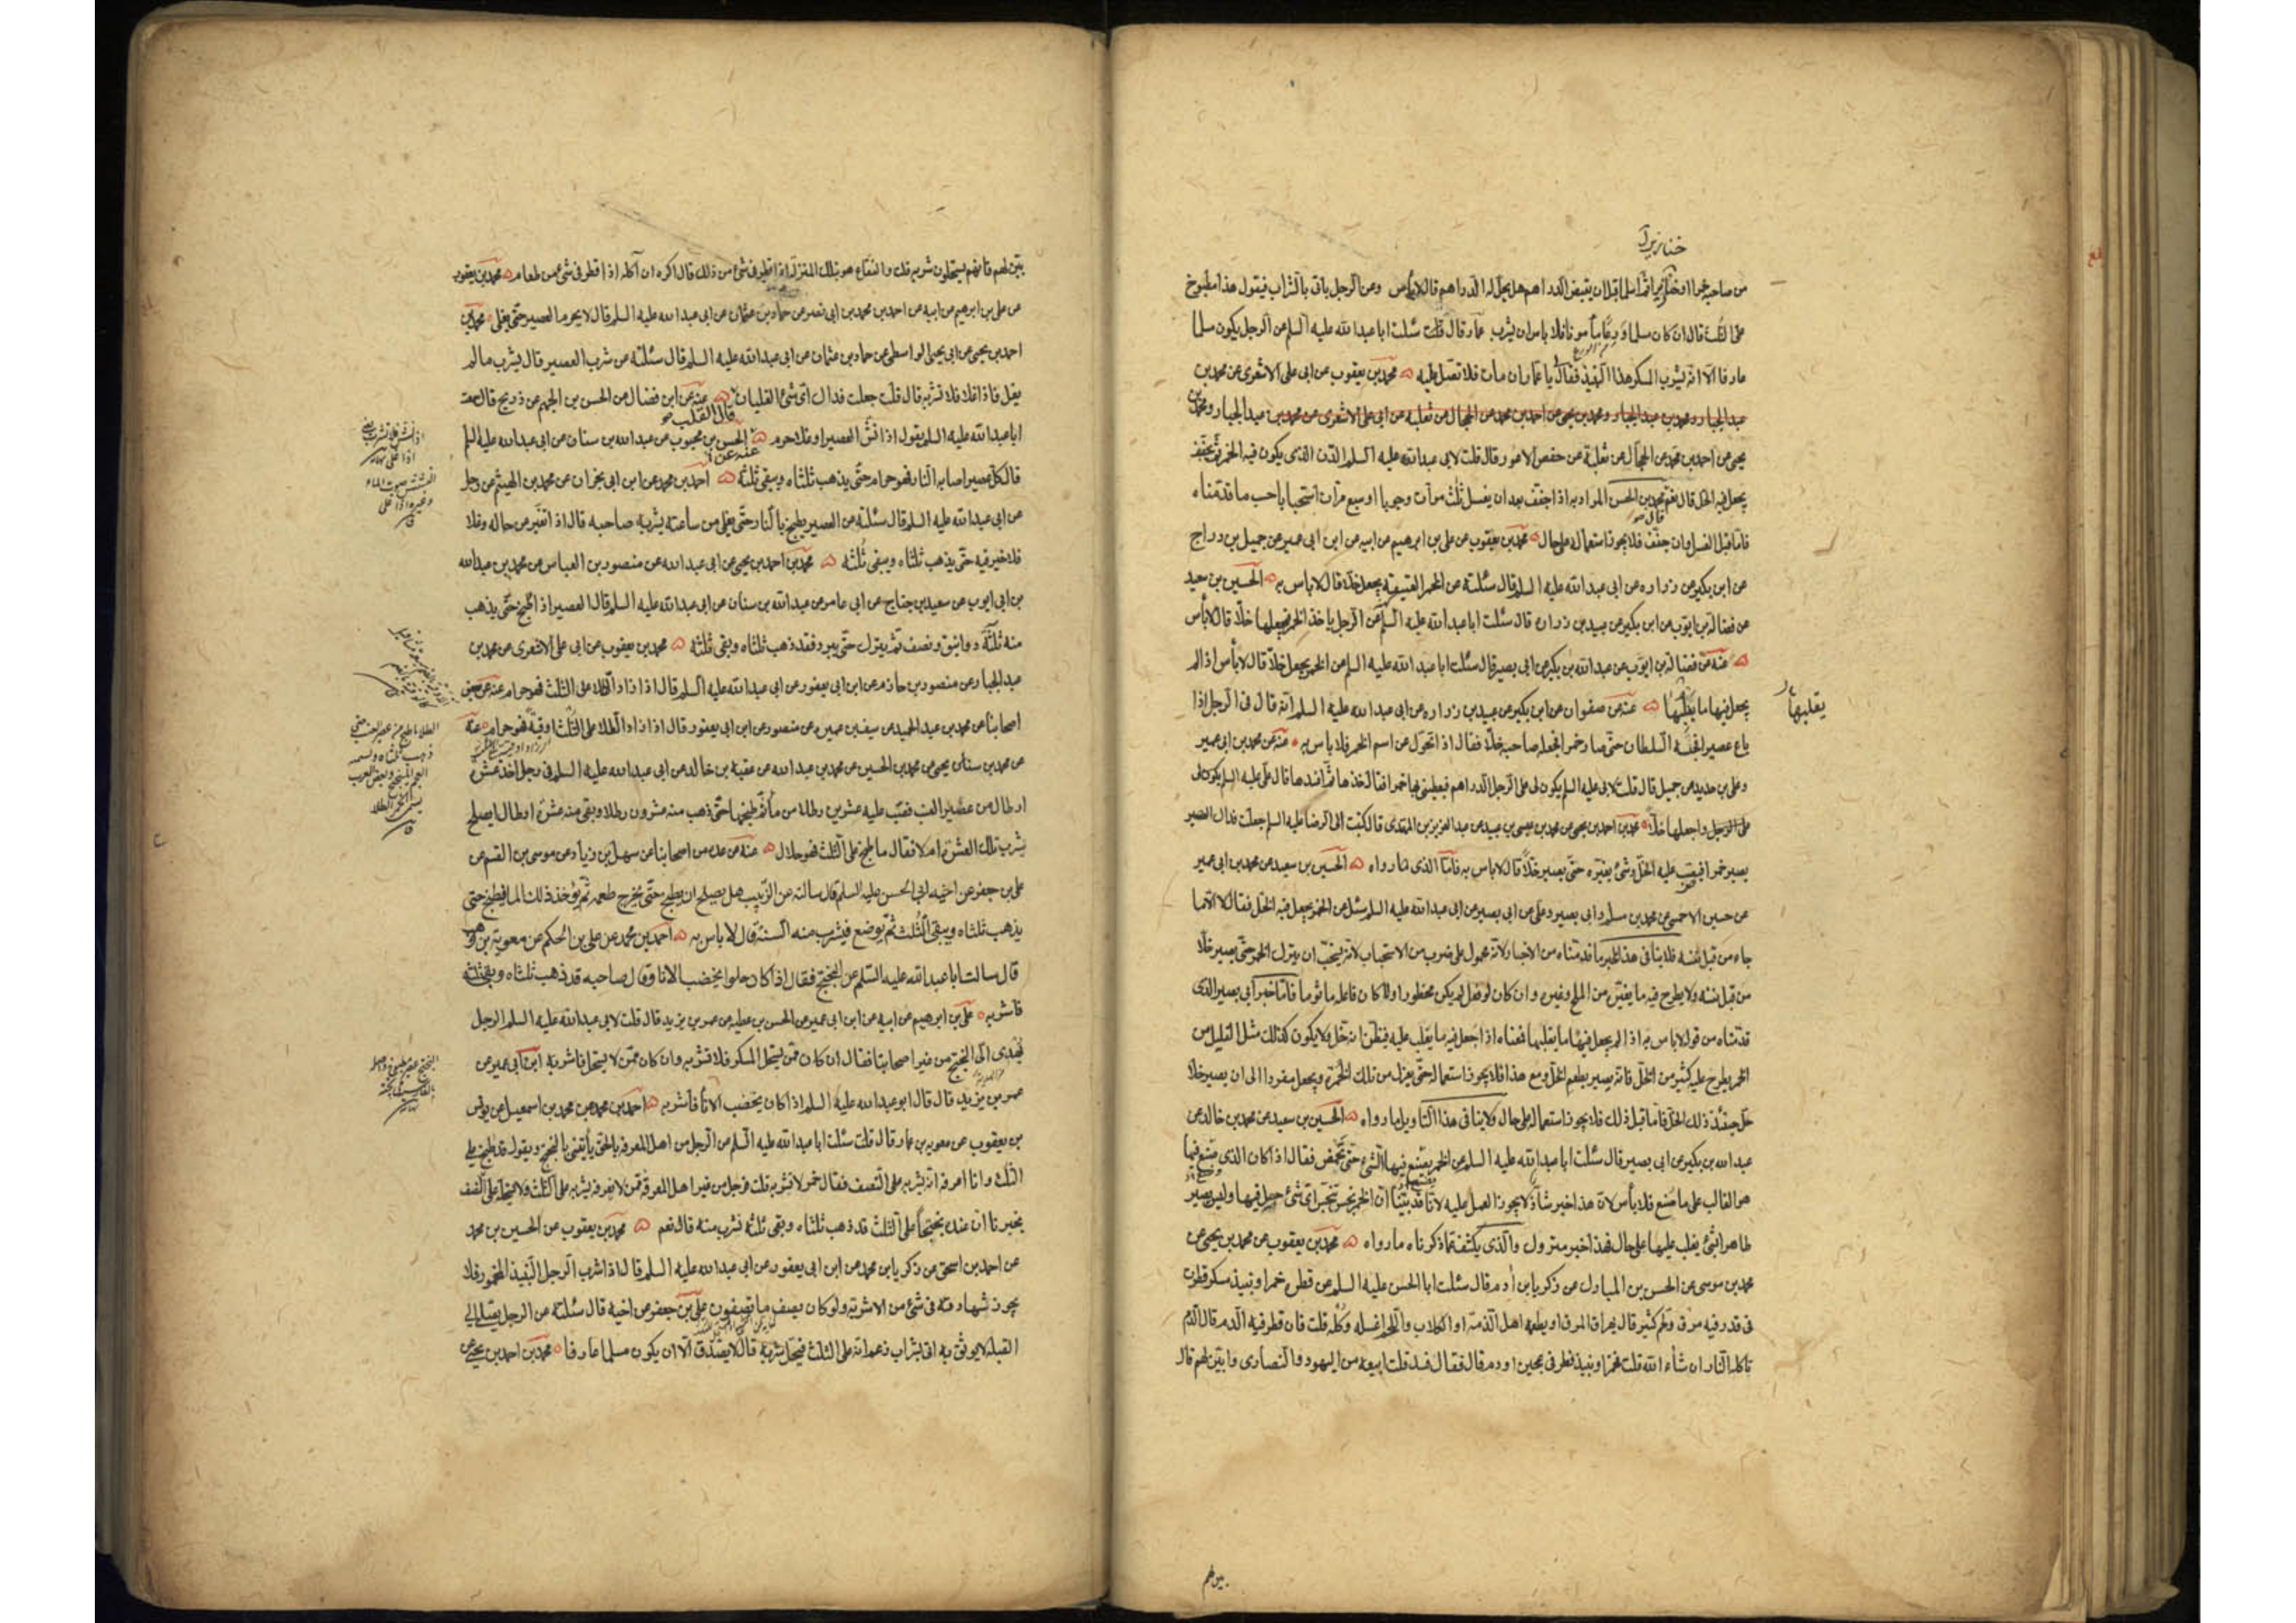 خنازير آ
من صاحبه خمرا او خنازير ثم اسلما قبل ان يقبض الدراهم هل يحل له الدراهم قال لا بأس وعن الرجل ياتى بالشراب فيقول هذا مطبوخ
على الثلث قال ان كان مسلما ورعا مأمونا فلا باس ان يشرب عمار قال قلت سئلت ابا عبد الله عليه السلم عن الرجل يكون مسلما
عارفا الا انه يشرب المسكر هذا النبيذ فقال يا عمار ان مات فلا تصل عليه محمد بن يعقوب عن ابى على الاشعرى عن محمد بن
عبد الجبار ومحمد بن
يحيى عن احمد بن محمد عن الحجال عن ثعلبة عن حفص الاعور قال قلت لابى عبد الله عليه السلم الدن الذى يكون فيه الخمر ثم يجفف
يجعل فيه الخل قال نعم محمد بن الحسن المراد به اذا جفف بعد ان يغسل ثلث مرات وجوبا او سبع مرات استحبابا حسب ما قدمناه
فاما قبل الغسل وان جفف فلا يجوز استعماله على حال محمد بن يعقوب عن على بن ابرهيم عن ابيه عن ابن ابى عمير عن جميل بن دراج
عن ابن بكير عن زرارة عن ابى عبد الله عليه السلم قال سئلته عن الخمر العتيقة يجعل خلا قال لا باس به الحسين بن سعيد
عن فضالة بن ايوب عن ابن بكير عن عبيد بن زرارة قال سئلت ابا عبد الله عليه السلم عن الرجل ياخذ الخمر فيجعلها خلا قال لا بأس
عنه عن فضالة بن ايوب عن عبد الله بن بكير عن ابى بصير قال سئلت ابا عبد الله عليه السلم عن الخمر يجعل خلا قال لا بأس اذا لم
يجعل فيها ما يقلبها عنه عن صفوان عن ابن بكير عن عبيد بن زرارة عن ابى عبد الله عليه السلم انه قال فى الرجل اذا
يقلبها
باع عصيرا فحبسه السلطان حتى صار خمرا فجعله صاحبه خلا فقال اذا تحول عن اسم الخمر فلا باس به عنه عن محمد بن ابى عمير
وعلى بن حديد عن جميل قال قلت لابى عليه السلم يكون لى على الرجل الدراهم فيعطينى بها خمرا فقال خذها ثم افسدها قال على
واجعلها خلا محمد بن احمد بن يحيى عن محمد بن عيسى بن عبيد عن عبد العزيز بن المهتدى قال كتبت الى الرضا عليه السلم جعلت فداك العصير
يصير خمرا فيصب عليه الخل وشئ يغيره حتى يصير خلا قال لا باس به فاما الذى رواه الحسين بن سعيد عن محمد بن ابى عمير
عن حسين الاحمسى عن محمد بن مسلم وابى بصير وعلى عن ابى بصير عن ابى عبد الله عليه السلم سئل عن الخمر يجعل فيه الخل فقال لا الا ما
جاء من قبل نفسه فلا ينافى هذا الخبر ما قدمناه من الاخبار لانه محمول على ضرب من الاستحباب لانه يستحب ان يترك الخمر حتى يصير خلا
من قبل نفسه ولا يطرح فيه ما يغيره من الملح وغيره وان كان لو فعل لم يكن محظورا ولا كان فاعله مأثوما فاما خبر ابى بصير الذى
قدمناه من قوله لا باس به اذا لم يجعل فيها ما يقلبها فمعناه اذا جعل فيه ما يقلب عليه فيظن انه خل ولا يكون كذلك مثل القليل من
الخمر يطرح عليه كثير من الخل فانه يصير بطعم الخل ومع هذا فلا يجوز استعماله حتى يعزل من تلك الخمرة ويجعل مفردا الى ان يصير خلا
حل حينئذ ذلك الخل فاما قبل ذلك فلا يجوز استعماله على حال ولا ينافى هذا التاويل ما رواه الحسين بن سعيد عن محمد بن خالد عن
عبد الله بن بكير عن ابى بصير قال سئلت ابا عبد الله عليه السلم عن الخمر يصنع فيها الشئ حتى تحمض فقال اذا كان الذى صنع فيها
هو الغالب على ما صنع فلا بأس لان هذا خبر شاذ لا يجوز العمل عليه لانا قد بينا ان الخمر نجس تنجس اى شئ جعل فيها وليس يصير
طاهرا بشئ يغلب عليها على حال فهذا خبر متروك والذى يكشف عما ذكرناه ما رواه محمد بن يعقوب عن محمد بن يحيى عن
محمد بن موسى عن الحسن بن المبارك عن زكريا بن ادم قال سئلت ابا الحسن عليه السلم عن قطرة خمر او نبيذ مسكر قطرت
فى قدر فيه مرق ولحم كثير قال يهراق المرق او يطعمه اهل الذمة او الكلاب واللحم اغسله وكله قلت فان قطر فيه الدم قال الدم
تاكله النار ان شاء الله قلت فخمر او نبيذ قطر فى عجين او دم قال فقال فسد قلت ابيعه من اليهود والنصارى وابين لهم قال
بين لهم
بين لهم فانهم يستحلون شربه قلت والفقاع هو بتلك المنزلة اذا قطر فى شئ من ذلك قال اكره ان آكله اذا قطر فى شئ من طعامى محمد بن يعقوب
عن على بن ابرهيم عن ابيه عن احمد بن محمد بن ابى نصر عن حماد بن عثمان عن ابى عبد الله عليه السلم قال لا يحرم العصير حتى يغلى محمد بن
احمد بن يحيى عن ابى يحيى الواسطى عن حماد بن عثمان عن ابى عبد الله عليه السلم قال سئلته عن شرب العصير قال يشرب ما لم
يغل فاذا غلا فلا تشربه قال قلت جعلت فداك اى شئ الغليان قال القلب عنه عن ابن فضال عن الحسن بن الجهم عن ذريح قال سمعت
ابا عبد الله عليه السلم يقول اذا نش العصير او غلا حرم الحسن بن محبوب عن عبد الله بن سنان عن ابى عبد الله عليه السلم
قال كل عصير اصابه النار فهو حرام حتى يذهب ثلثاه ويبقى ثلثه احمد بن محمد عن ابن ابى نجران عن محمد بن الهيثم عن رجل
عن ابى عبد الله عليه السلم قال سئلته عن العصير يطبخ بالنار حتى يغلى من ساعته يشربه صاحبه قال اذا تغير من حاله وغلا
فلا خير فيه حتى يذهب ثلثاه ويبقى ثلثه محمد بن احمد بن يحيى عن ابى عبد الله عن منصور بن العباس عن محمد بن عبد الله
بن ابى ايوب عن سعيد بن جناح عن ابى عامر عن عبد الله بن سنان عن ابى عبد الله عليه السلم قال العصير اذا طبخ حتى يذهب
منه ثلثة دوانيق ونصف ثم يترك حتى يبرد فقد ذهب ثلثاه وبقى ثلثه محمد بن يعقوب عن ابى على الاشعرى عن محمد بن
عبد الجبار عن منصور بن حازم عن ابن ابى يعفور عن ابى عبد الله عليه السلم قال اذا زاد الطلا على الثلث فهو حرام عنه عن بعض
اصحابنا عن محمد بن عبد الحميد عن سيف بن عميرة عن منصور عن ابن ابى يعفور قال اذا زاد الطلا على الثلث اوقية فهو حرام عنه
عن محمد بن يحيى عن محمد بن الحسين عن محمد بن عبد الله عن عقبة بن خالد عن ابى عبد الله عليه السلم فى رجل اخذ عشرة
ارطال من عصير العنب فصب عليه عشرين رطلا من ماء ثم طبخها حتى ذهب منه عشرون رطلا وبقى منه عشرة ارطال ايصلح
شرب تلك العشرة ام لا فقال ما طبخ على الثلث فهو حلال عنه عن عدة من اصحابنا عن سهل بن زياد عن موسى بن القسم عن
على بن جعفر عن اخيه ابى الحسن عليه السلم قال سالته عن الزبيب هل يصلح ان يطبخ حتى يخرج طعمه ثم يؤخذ ذلك الما فيطبخ حتى
يذهب ثلثاه ويبقى الثلث ثم يوضع فيشرب منه السنة قال لا باس به احمد بن محمد عن على بن الحكم عن معوية بن وهب
قال سالت ابا عبد الله عليه السلم عن البختج فقال اذا كان حلوا يخضب الانا وقال صاحبه قد ذهب ثلثاه وبقى ثلثه
فاشربه على بن ابرهيم عن ابيه عن ابن ابى عمير عن الحسن بن عطية عن عمر بن يزيد قال قلت لابى عبد الله عليه السلم الرجل
يهدى الى البختج من غير اصحابنا فقال ان كان ممن يستحل المسكر فلا تشربه وان كان ممن لا يستحل فاشربه ابن ابى عمير عن
عمر بن يزيد قال قال ابو عبد الله عليه السلم اذا كان يخضب الاناء فاشربه احمد بن محمد عن محمد بن اسمعيل عن يونس
بن يعقوب عن معوية بن عمار قال قلت سئلت ابا عبد الله عليه السلم عن الرجل من اهل المعرفة بالحق يأتينى بالبختج ويقول قد طبخ على
الثلث وانا اعرفه انه يشربه على النصف فقال خمر لا تشربه قلت فرجل من غير اهل المعرفة ممن لا نعرفه يشربه على الثلث ولا يستحله على النصف
يخبرنا ان عنده بختجا على الثلث قد ذهب ثلثاه وبقى ثلثه نشرب منه قال نعم محمد بن يعقوب عن الحسين بن محمد
عن احمد بن اسحق عن زكريا بن محمد عن ابن ابى يعفور عن ابى عبد الله عليه السلم قال اذا شرب الرجل النبيذ المخمور فلا
يجوز شهادته فى شئ من الاشربة ولو كان يصف ما تصفون على بن جعفر عن اخيه قال سئلته عن الرجل يصلى الى
القبلة لا يوثق به اتى بشراب زعم انه على الثلث فيحل شربه قال لا يصدق الا ان يكون مسلما عارفا محمد بن احمد بن يحيى عن